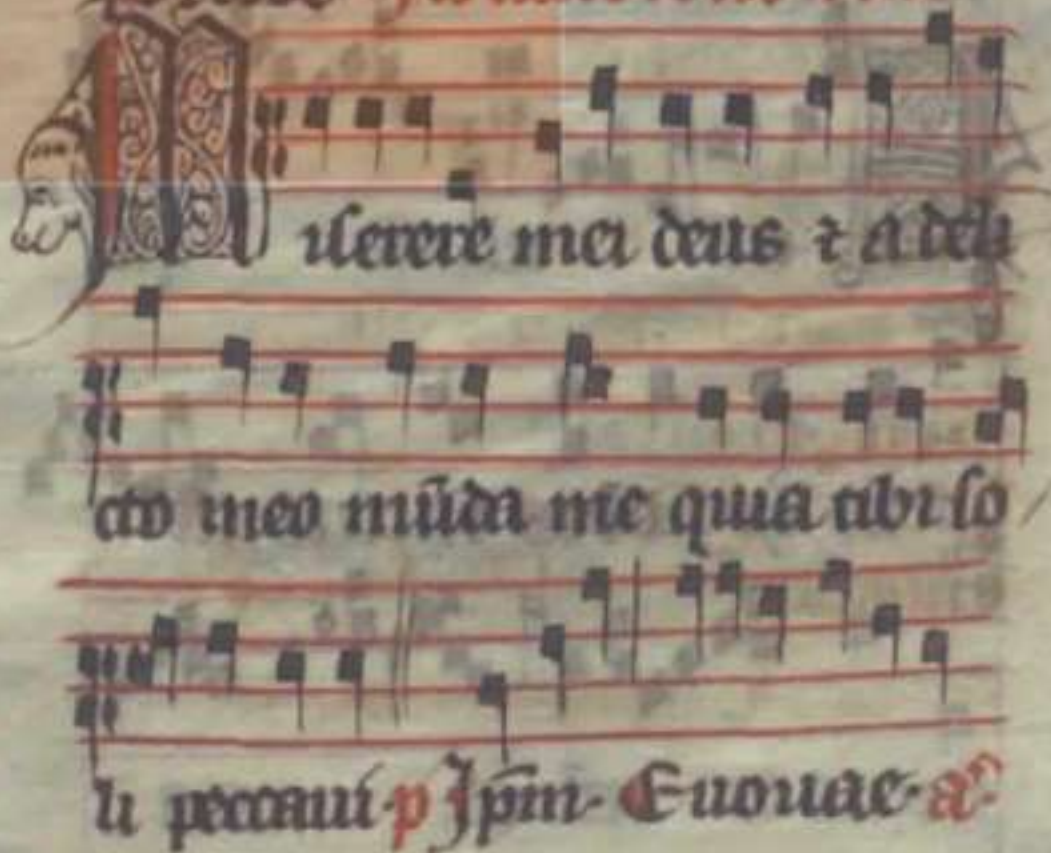 Miserere mei deus ⁊ a deli
cto meo mūda me quia tibi so
li peccaui· p̶ Ip̄m· Euouae· a᷒·